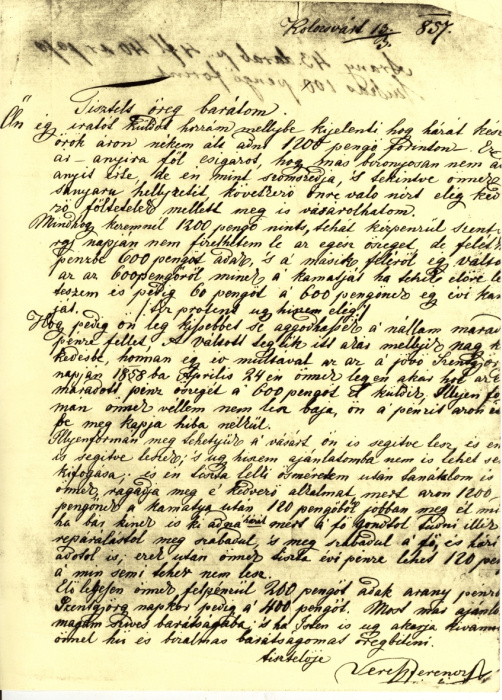 Kolozsvárt 13/3. 857.
Arany 43 darab p. 4 ft 40
100 pengő forint
Tisztelt öreg barátom
Ön egy iratot küldöt hozzám mellybe kijelenti hogy házát
örök áron nékem által adná 1200 pengő forinton. Ez
ár anyira föl csigázot, hogy más bizonyosan nem ád
anyit érte, de én mint szomszédja, s tekintve önnek
sanyarú hellyzetit következő önre való nézt elég ked
ző föltételek mellett meg is vásárlhatom.
Mindhogy kezemnél 1200 pengő nints, tehát készpénzül szent
György napján nem fizethetem le az egész öszeget, de felét
pénzbe 600 pengőt ádok, s a másik feléről egy váltót
az az 600 pengőről minek a kamatját ha tetszik előre le
teszem és pedig 60 pengőt a 600 pengőnek egy évi ka
ját. protent ug hiszem elég!
Hogy pedig ön leg kisebbet se aggódhassék a nállam marad
pénze fellet A váltót teszük itt más mellyik nagy ke
kedésbe, honnan egy év multával az az a jövő Szentgyörgy
napján 1858 ba Április 24 én önnek legyen akás hoz az
maradott pénz öszegét a 600 pengőt el küldeni, Illyen for
mán önnek vellem nem lesz baja, ön a pénzit áron és
be meg kapja hiba nélkül.
Illyenformán meg tehetjük a vásárt ön is segitve lesz, és én
is segitve leszek; s ug hiszem ajánlatomba nem is lehet se
kifogása; és én tiszta lelki ösméretem után tanátolom is
önnek, ragadja meg e kedvező alkalmat mert áron 1200
pengőnek a kamatya után 120 pengőből jobban meg él mi
ha bár kinek is ki adná házát mert a fő gondtol tudni illik
reparálástol meg szabadul s meg szabadul a fő, és házi
adótol is; ezek után önnek tiszta évi pénze lehet 120 pen
a min semi teher nem lesz.
Elölegesen önnek felpénzül 200 pengőt adok arany pénzbe
Szentgyörg napkor pedig a 400 pengőt. Most más ajánlo
magam szives barátságába, s ha Isten is ug akarja kivánno
önnel hű és bizalmas barátságomas öregbiteni.
tisztelője
Veres Ferencz